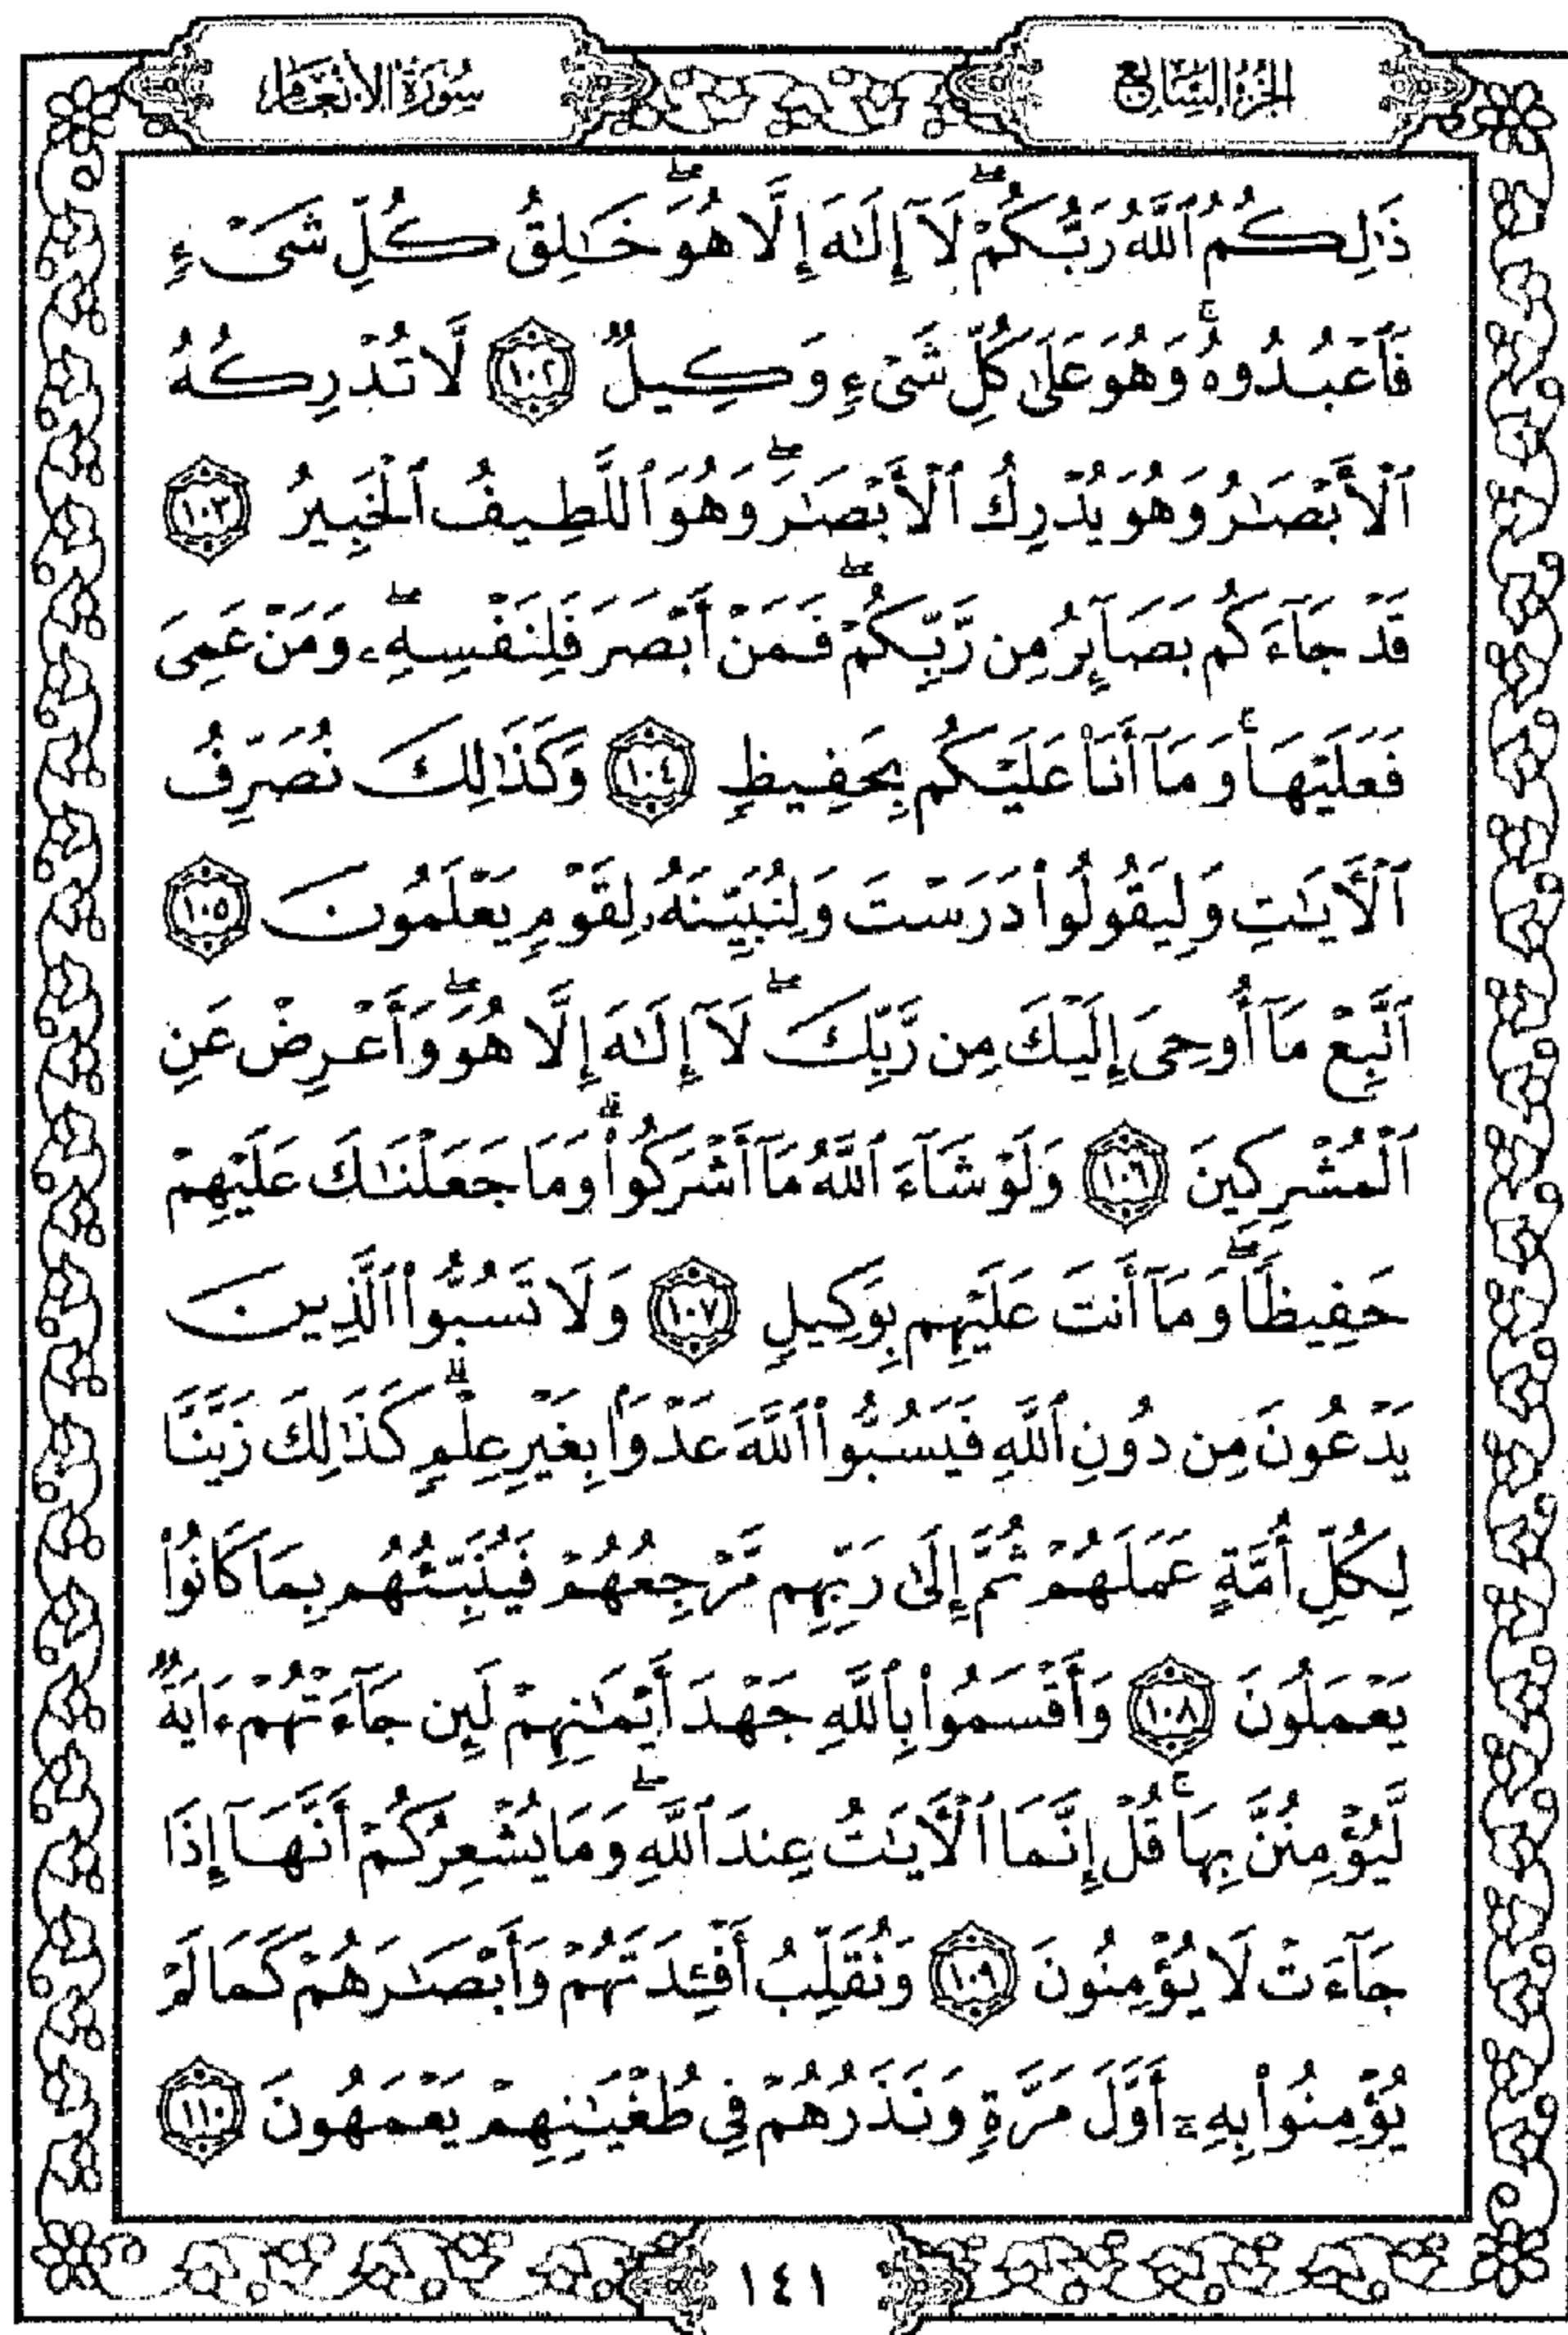 الجزء السابع
سورة الأنعام
ذَٰلِكُمُ ٱللَّهُ رَبُّكُمْ ۖ لَآ إِلَٰهَ إِلَّا هُوَ ۖ خَٰلِقُ كُلِّ شَىْءٍ
فَٱعْبُدُوهُ ۚ وَهُوَ عَلَىٰ كُلِّ شَىْءٍ وَكِيلٌ ١٠٢ لَّا تُدْرِكُهُ
ٱلْأَبْصَٰرُ وَهُوَ يُدْرِكُ ٱلْأَبْصَٰرَ ۖ وَهُوَ ٱللَّطِيفُ ٱلْخَبِيرُ ١٠٣
قَدْ جَآءَكُم بَصَآئِرُ مِن رَّبِّكُمْ ۖ فَمَنْ أَبْصَرَ فَلِنَفْسِهِۦ ۖ وَمَنْ عَمِىَ
فَعَلَيْهَا ۚ وَمَآ أَنَا۠ عَلَيْكُم بِحَفِيظٍ ١٠٤ وَكَذَٰلِكَ نُصَرِّفُ
ٱلْأَيَٰتِ وَلِيَقُولُوا۟ دَرَسْتَ وَلِنُبَيِّنَهُۥ لِقَوْمٍ يَعْلَمُونَ ١٠٥
ٱتَّبِعْ مَآ أُوحِىَ إِلَيْكَ مِن رَّبِّكَ ۖ لَآ إِلَٰهَ إِلَّا هُوَ ۖ وَأَعْرِضْ عَنِ
ٱلْمُشْرِكِينَ ١٠٦ وَلَوْ شَآءَ ٱللَّهُ مَآ أَشْرَكُوا۟ ۗ وَمَا جَعَلْنَٰكَ عَلَيْهِمْ
حَفِيظًا ۖ وَمَآ أَنتَ عَلَيْهِم بِوَكِيلٍ ١٠٧ وَلَا تَسُبُّوا۟ ٱلَّذِينَ
يَدْعُونَ مِن دُونِ ٱللَّهِ فَيَسُبُّوا۟ ٱللَّهَ عَدْوًۢا بِغَيْرِ عِلْمٍ ۗ كَذَٰلِكَ زَيَّنَّا
لِكُلِّ أُمَّةٍ عَمَلَهُمْ ثُمَّ إِلَىٰ رَبِّهِم مَّرْجِعُهُمْ فَيُنَبِّئُهُم بِمَا كَانُوا۟
يَعْمَلُونَ ١٠٨ وَأَقْسَمُوا۟ بِٱللَّهِ جَهْدَ أَيْمَٰنِهِمْ لَئِن جَآءَتْهُمْ ءَايَةٌ
لَّيُؤْمِنُنَّ بِهَا ۚ قُلْ إِنَّمَا ٱلْأَيَٰتُ عِندَ ٱللَّهِ ۖ وَمَا يُشْعِرُكُمْ أَنَّهَآ إِذَا
جَآءَتْ لَا يُؤْمِنُونَ ١٠٩ وَنُقَلِّبُ أَفْـِٔدَتَهُمْ وَأَبْصَٰرَهُمْ كَمَا لَمْ
يُؤْمِنُوا۟ بِهِۦٓ أَوَّلَ مَرَّةٍ وَنَذَرُهُمْ فِى طُغْيَٰنِهِمْ يَعْمَهُونَ ١١٠
١٤١